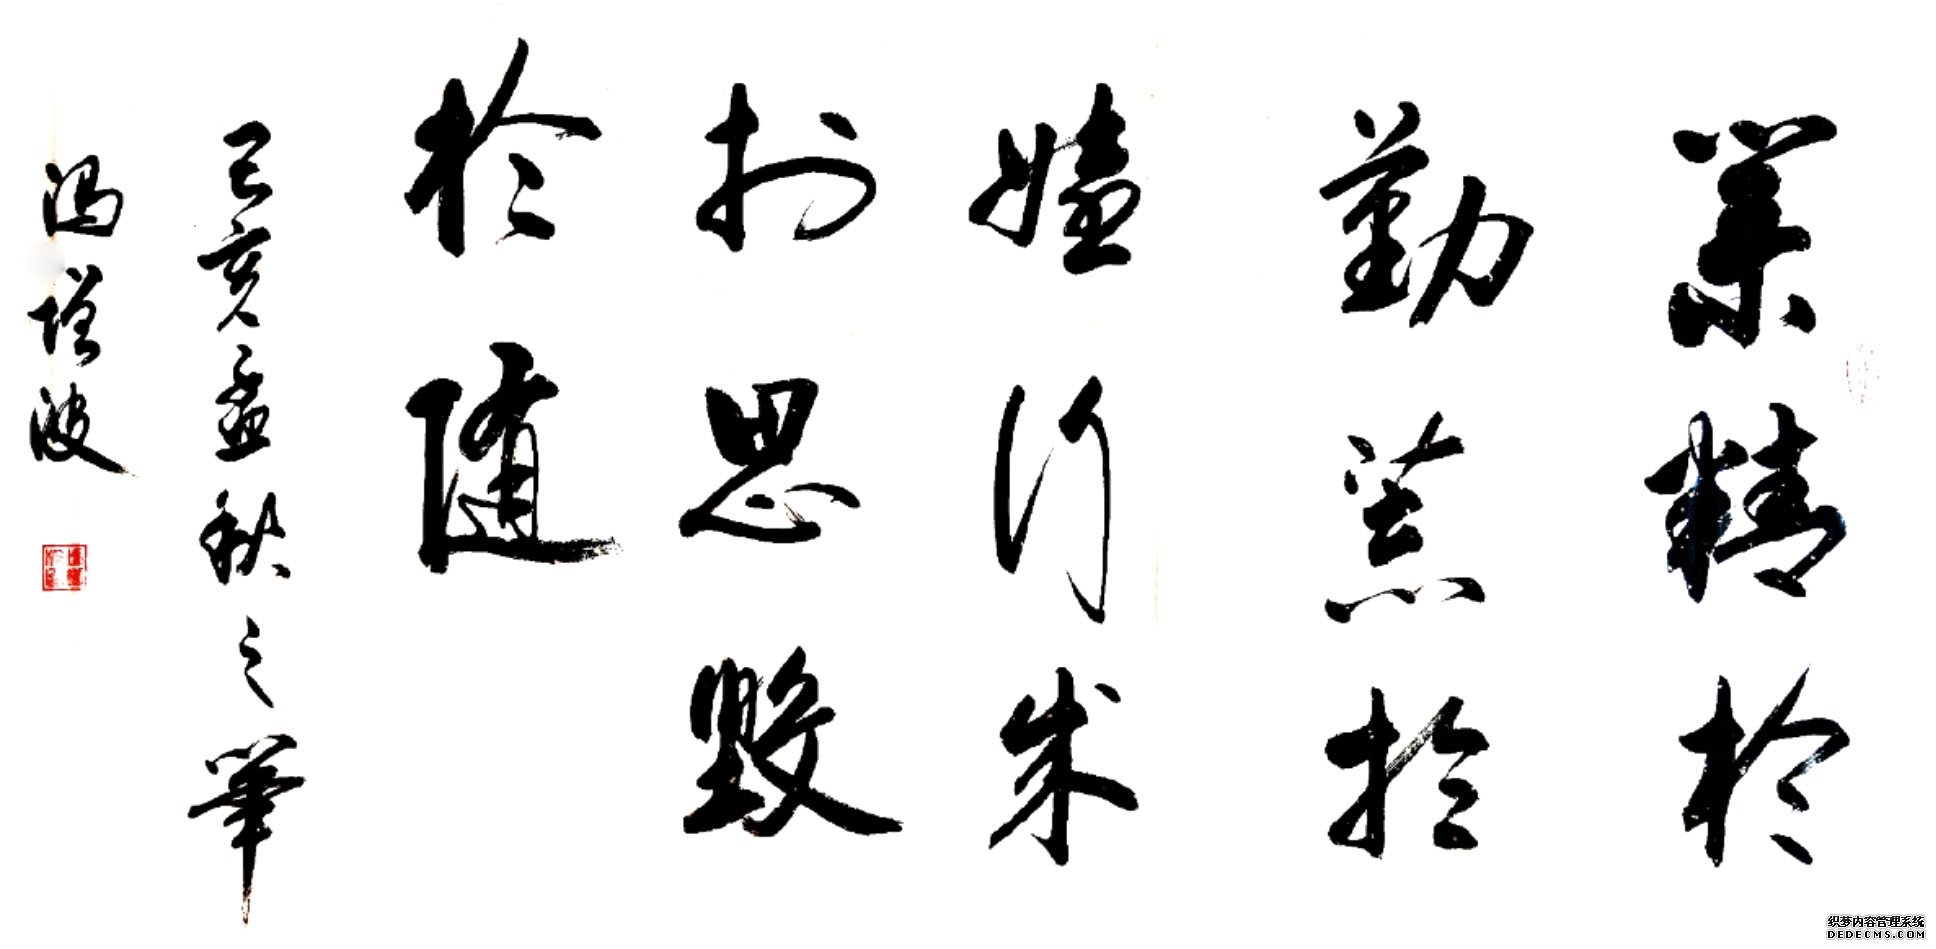 業精於
勤荒於
嬉行成
於思毁
於随
己亥孟秋之筆
冯增波
织梦内容管理系统
DEDECMS.COM